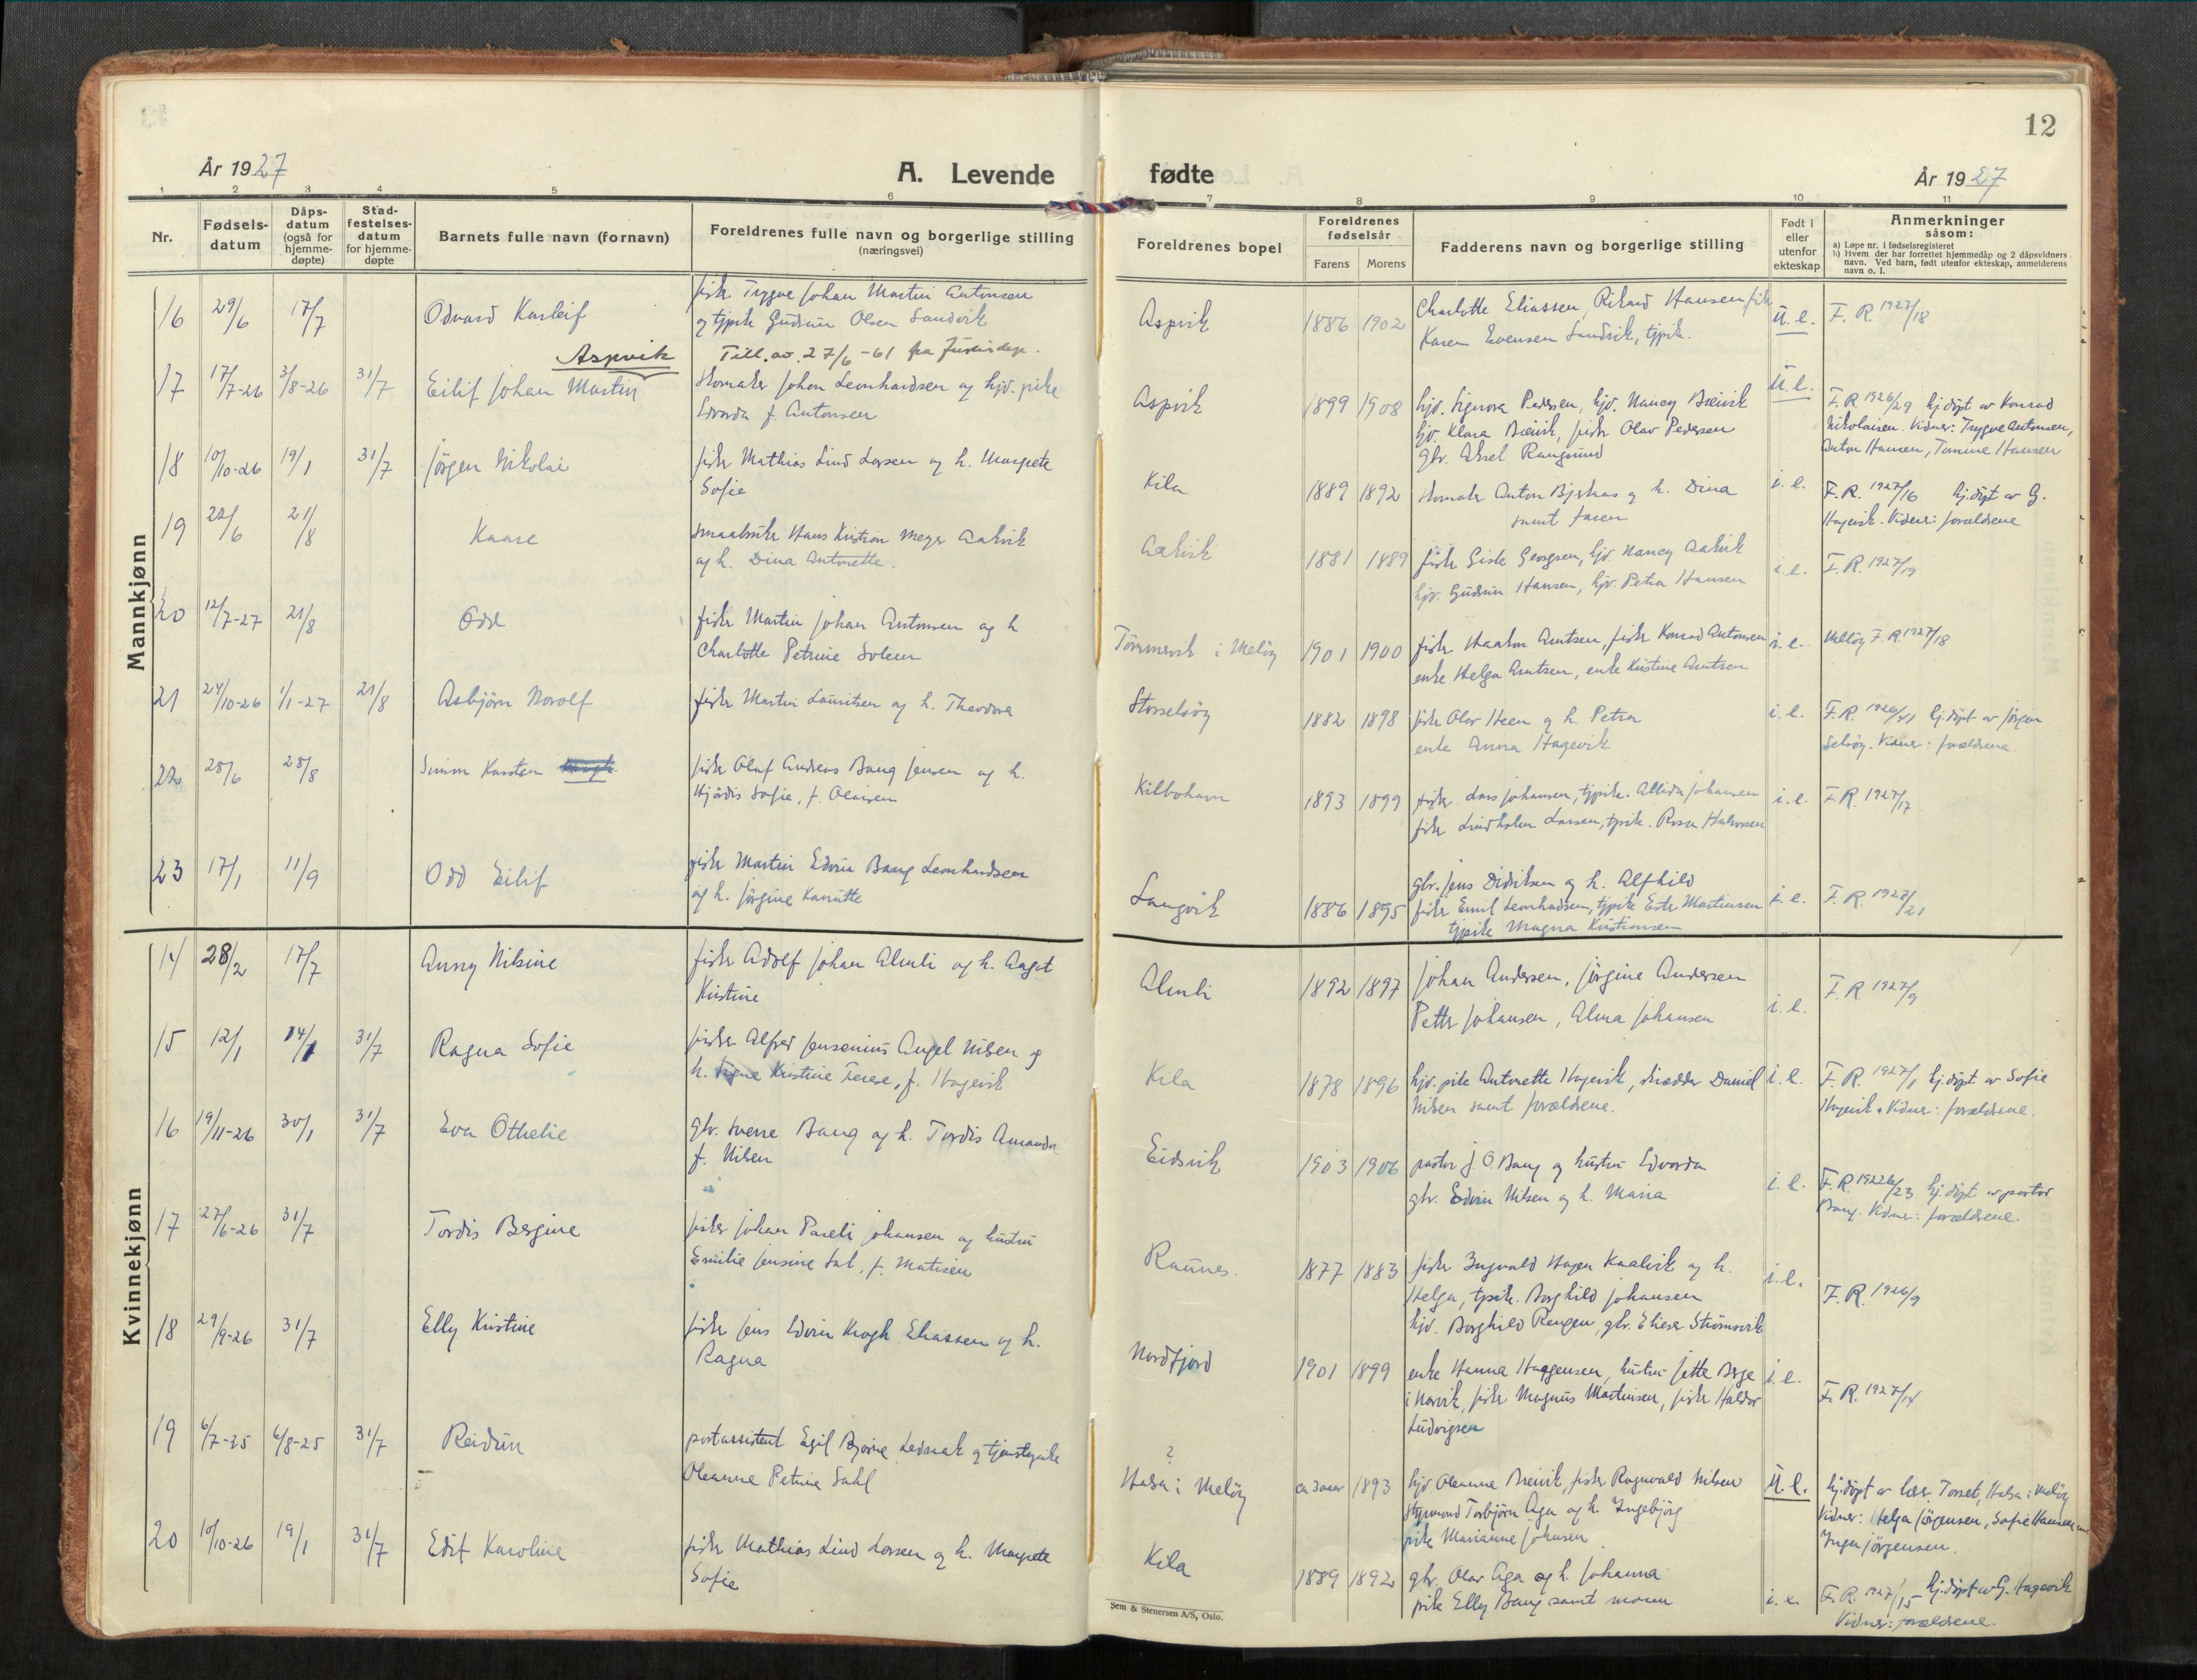 12
År 1927
A. Levende
fødte
År 1927
1 2 3 4 5 6 7 8 9 10 11
Nr.
Fødsels-
datum
Dåps-
datum
(også for
hjemme-
døpte)
Stad-
festelses-
datum
for hjemme-
døpte
Barnets fulle navn (fornavn)
Foreldrenes fulle navn og borgerlige stilling
(næringsvei)
Foreldrenes bopel
Foreldrenes
fødselsår
Farens Morens
Fadderens navn og borgerlige stilling
Født i
eller
utenfor
ekteskap
Anmerkninger
såsom:
a) Løpe nr. i fødselsregisteret
b) Hvem der har forrettet hjemmedåp og 2 dåpsvidners
navn. Ved barn, født utenfor ekteskap, anmelderens
navn o. l.
Mannkjønn
16 29/6 17/7 Odvard Karleif
fisker Trygve Johan Martin Antonsen
og tjpike Gudrun Olsen Sandvik
Aspvik 1886 1902
Charlotte Eliassen, Rikard Hansen fisk
Karen Evensen Sandvik, tjpik.
u.e. F. R. 1927/18
Aspvik Till. av. 27/6-61 fra
17 17/7-26 3/8-26 31/7 Eilif Johan Martin
Skomaker Johan Leonhardsen og hjv. pike
Edvarda f. Antonsen
Aspvik 1899 1908
hjv. Signora Pedersen, hjv. Nancy Breivik
hjv. Klara Breivik, fisker Olav Pedersen
gbr. Aksel Rangsund
u.e. F. R. 1926/29 hj.døpt av Konrad
Nikolaisen. Vidner: Trygve Antonsen,
Anton Hansen, Tomine Hansen
18 10/10-26 19/1 31/7 Jørgen Nikolai
fisker Mathias Lind Larsen og h. Margrete
Sofie
Kila 1889 1892
Skomaker Anton Bjerkas og h. Dina
samt faren
i.e. F. R. 1927/16 hj.døpt av G.
Hagevik. Vidner: forældrene
19 22/6 21/8 Kaare
smaabruker Hans Kristian Meyer Aakvik
og h. Dina Antonette.
Aakvik 1881 1889
fisker Giske Georgsen, hjv. Nancy Aakvik
hjv. Gudrun Hansen, hjv. Petra Hansen
i.e. F. R. 1927/19
20 12/7-27 21/8 Odd
fisker Martin Johan Antonsen og h.
Charlotte Petrine Solem
Tømmervik i Meløy 1901 1900
fisker Haakon Arntsen, fisker Konrad Antonsen
enke Helga Arntsen, enke Kristine Arntsen
i.e. Meløy F. R. 1927/18
21 24/10-26 1/1-27 21/8 Asbjørn Norolf
fisker Martin Lauritsen og h. Theodora
Storselsøy 1882 1898
fisker Olav Heen og h. Petra
enke Anna Hagevik
i.e. F. R. 1926/41 hj.døpt av Jørgen
Selsøy. Vidner: forældrene
22 28/6 28/8 Simon Karsten
fisker Olaf Andreas Bang Jensen og h.
Hjørdis Sofie, f. Olaisen
Kilbohavn 1893 1899
fisker Lars Johansen, tjpike. Allida Johansen
fisker Lindholm Larsen, tjpik. Rosa Halvorsen
i.e. F. R. 1927/17
23 17/1 11/9 Odd Eilif
fisker Martin Edvin Bang Leonhardsen
og h. Jørgine Kanutte
Langvik 1886 1895
gbr. Jens Didriksen og h. Alfhild
fisker Emil Leonhadsen, tjpike Ester Martinsen
tjpike Magna Kristiansen
i.e. F. R. 1927/21
Kvinnekjønn
14 28/2 17/7 Anny Nilsine
fisker Adolf Johan Almli og h. Aagot
Kristine
Almli 1892 1897
Johan Andersen, Jørgine Andersen
Petter Johansen, Alma Johansen
i.e. F. R. 1927/9
15 12/1 14/1 31/7 Ragna Sofie
fisker Alfred Jensenius Angel Nilsen og
h. Signe Kristine Terese, f. Hagevik
Kila 1878 1896
hjv. pike Antonette Hagevik, skrædder Daniel
Nilsen samt forældrene.
i.e. F. R. 1927/1 hj.døpt av Sofie
Hagevik. Vidner: forældrene.
16 19/11-26 30/1 31/7 Eva Othelie
gbr. Sverre Bang og h. Tordis Amanda
f. Nilsen
Eidsvik 1903 1906
pastor J. O. Bang og hustru Edvarda
gbr. Edvin Nilsen og h. Maria
i.e. F. R. 1926/23 hj.døpt av pastor
Bang. Vidner: forældrene.
17 27/6-26 31/7 Tordis Bergine
fisker Johan Pareli Johansen og hustru
Emilie Jensine Sal. f. Matisen
Raunes. 1877 1883
fisker Ingvald Hagen Kaalvik og h.
Helga, tjpik. Borghild Johansen
i.e. F. R. 1926/9
18 29/9-26 31/7 Elly Kristine
fisker Jens Edvin Krogh Eliassen og h.
Ragna
Nordfjord 1901 1899
hjv. Borghild Rengen, gbr. Elieser Strømsvik
enke Hanna Haagensen, hustru Jette Berge
i Narvik, fisker Magnus Martinsen, fisker Haldor
Ludvigsen
i.e. F. R. 1927/14
19 6/7-25 6/8-25 31/7 Reidun
postassistent Egil Bjarne Ledsaak og tjenstepike
Oleanne Petrine Dahl
?
Halsa i Meløy ca 30 aar 1893
hjv. Oleanne Breivik, fisker Ragnvald Nilsen
styrmand Torbjørn Aga og h. Ingebjørg
pike Marianne Johnsen
u.e. hj.døpt av lær. Torset, Halsa i Meløy
Vidner: Helga Jørgensen, Sofie Hansen
Inga Jørgensen.
20 10/10-26 19/1 31/7 Edit Karoline
fisker Mathias Lind Larsen og h. Margrete
Sofie
Kila 1889 1892
gbr. Olav Aga og h. Johanna
pike Elly Bang samt moren
i.e. F. R. 1927/15 hj.døpt av G. Hagevik
Vidner: forældrene.
Sem & Stenersen A/S, Oslo.